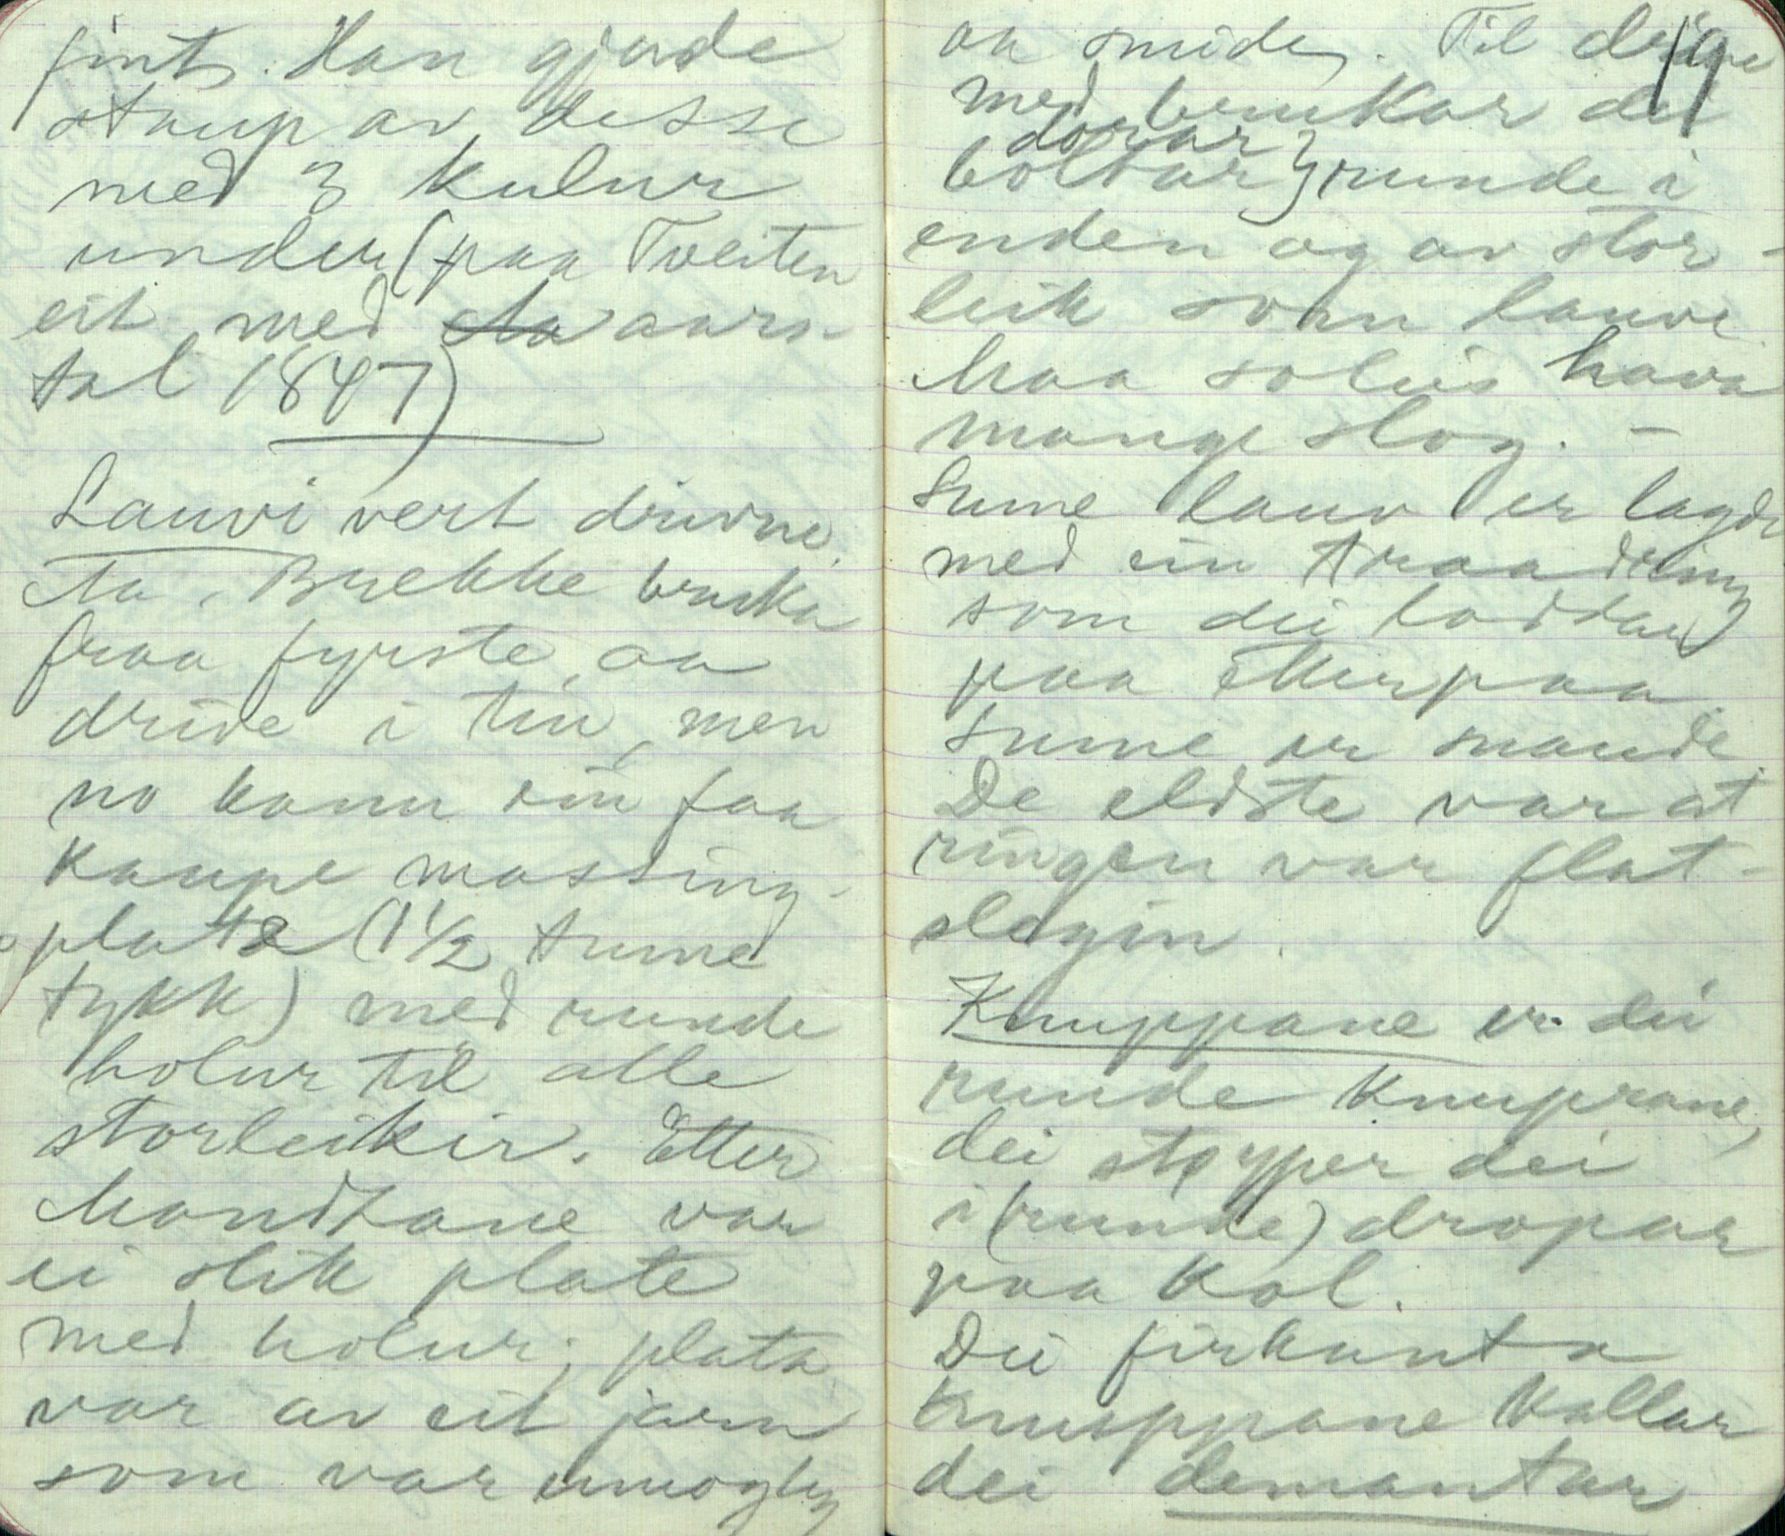 fint. Han gjorde
staup av desse
med 3 kulur
under (paa Tveiten
eit med sta aars-
tal 1847)
Lauvi vert drivne.
Ta. Brekke bruka
fraa fyrste aa
drive i tin, men
no kann ein faa
kaupe messing-
plate (1 1/2 tume
tykk) med runde
holur til alle
storleikir. Etter
Mandtane var
ei slik plate
med holur; plata
var av eit jarn
som var umogleg
19
aa smide. Til drive
med brukar dei
dorar
boltar} runde i
enden og av stor-
leik som lauvi
Maa soleis hava
mange slag. -
Sume lauv er lagde
med ein traadring
som dei loddar
paa etterpaa.
Sume er snaude.
De eldste var at
ringen var flat-
slegin.
Knuppane er dei
runde knuprane,
dei støyper dei
i (runde) dropar
paa kol.
Dei firkanta
knuppane kallar
dei demantar